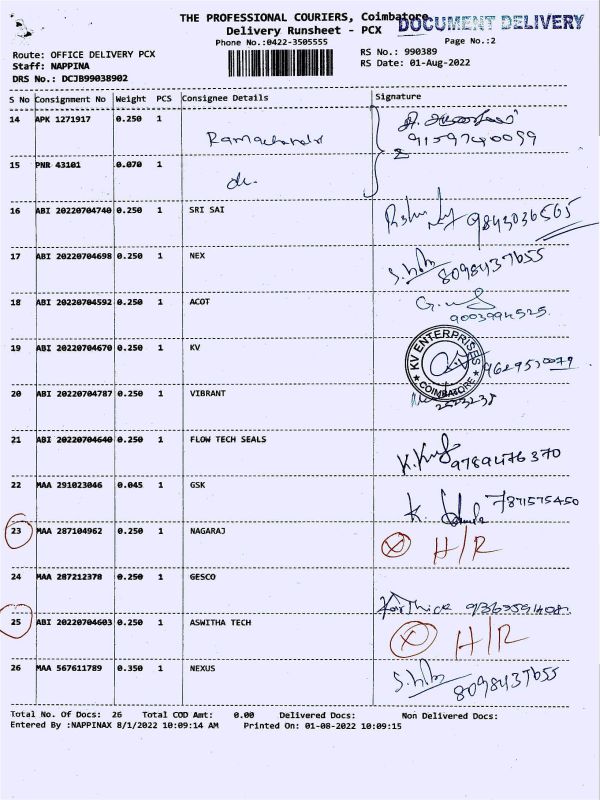 THE PROFESSIONAL COURIERS, Coimbatore
DOCUMENT DELIVERY
Delivery Runsheet - PCX
Phone No.:0422-3505555
Page No.:2
Route: OFFICE DELIVERY PCX
RS No.: 990389
Staff: NAPPINA
RS Date: 01-Aug-2022
DRS No.: DCJB99038902
S No Consignment No Weight PCS Consignee Details Signature
14 APK 1271917 0.250 1 Ramachandr
15 PNR 43101 0.070 1 do.
16 ABI 20220704740 0.250 1 SRI SAI 9843036565
17 ABI 20220704698 0.250 1 NEX 8098437655
18 ABI 20220704592 0.250 1 ACOT 9003994525.
19 ABI 20220704670 0.250 1 KV KV ENTERPRISES COIMBATORE
20 ABI 20220704787 0.250 1 VIBRANT
21 ABI 20220704640 0.250 1 FLOW TECH SEALS 9789476370
22 MAA 291023046 0.045 1 GSK 7871575450
23 MAA 287104962 0.250 1 NAGARAJ X H/R
24 MAA 287212378 0.250 1 GESCO Karthick
25 ABI 20220704603 0.250 1 ASWITHA TECH X H/R
26 MAA 567611789 0.350 1 NEXUS 8098437655
Total No. Of Docs: 26 Total COD Amt: 0.00 Delivered Docs: Non Delivered Docs:
Entered By :NAPPINAX 8/1/2022 10:09:14 AM Printed On: 01-08-2022 10:09:15